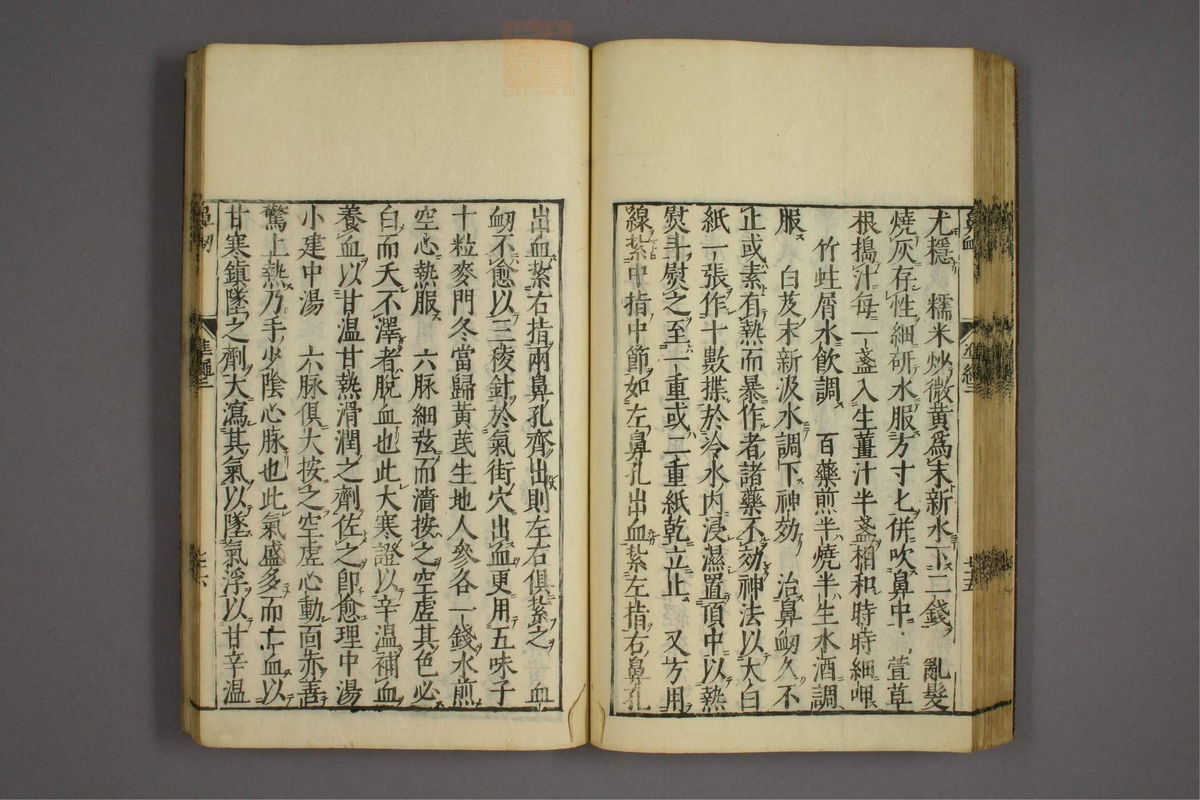 尤穩　糯米炒微黃為末新水下二錢　亂髮
燒灰存性細研水服方寸匕併吹鼻中　萱草
根搗汁每一盞入生薑汁半盞相和時時細呷
竹蛀屑水飲調　百藥煎半燒半生水酒調
服　白芨末新汲水調下神効　治鼻衂久不
止或素有熱而暴作者諸藥不効神法以大白
紙一張作十數摺於冷水内浸濕置頂中以熱
熨斗熨之至一重或二重紙乾立止　又方用
線紮中指中節如左鼻孔出血紮左指右鼻孔
出血紮右指兩鼻孔齊出則左右俱紮之　血
衂不愈以三稜針於氣街穴出血更用五味子
十粒麥門冬當歸黃芪生地人參各一錢水煎
空心熱服　六脉細弦而濇按之空虛其色必
白而夭不澤者脫血也此大寒證以辛溫補血
養血以甘溫甘熱滑潤之劑佐之卽愈理中湯
小建中湯　六脉俱大按之空虛心動面赤善
驚上熱乃手少陰心脉也此氣盛多而亡血以
甘寒鎮墜之劑大瀉其氣以墜氣浮以甘辛溫
鼻衂
廿五
鼻衂
廿六